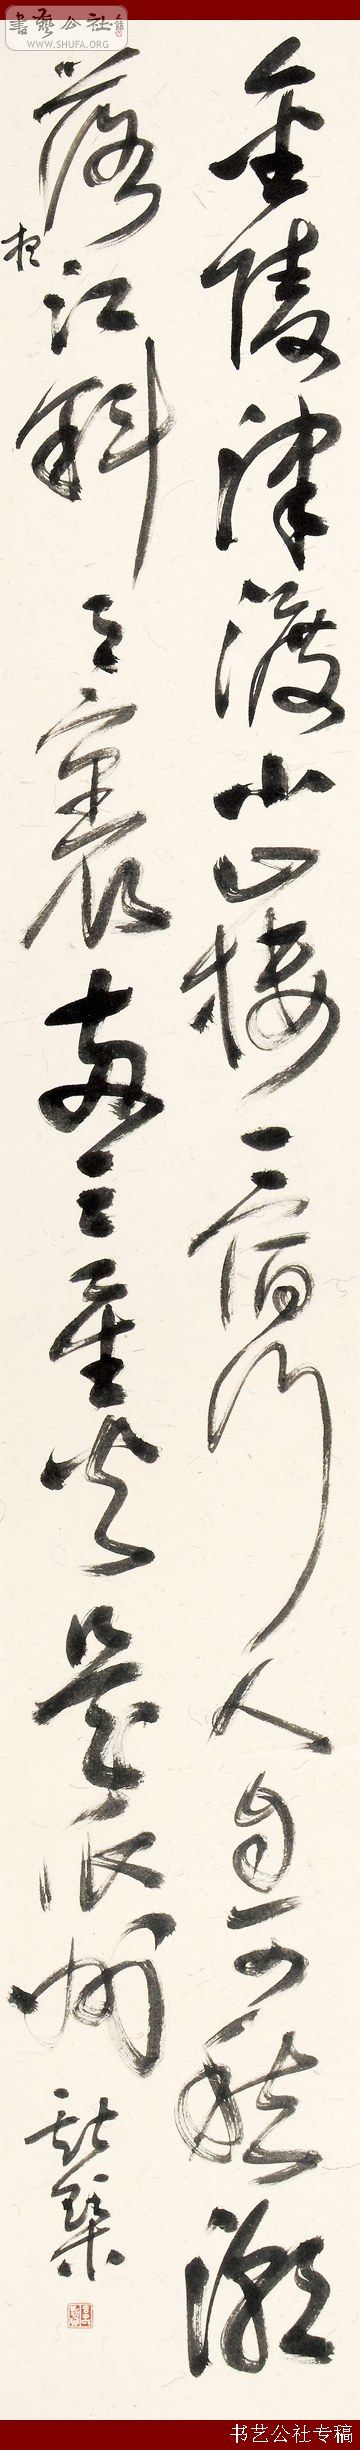 書藝公社
WWW.SHUFA.ORG
金陵津渡小山樓一宿行人自可愁潮
落夜江斜月裏兩三星火是瓜州
书艺公社专稿